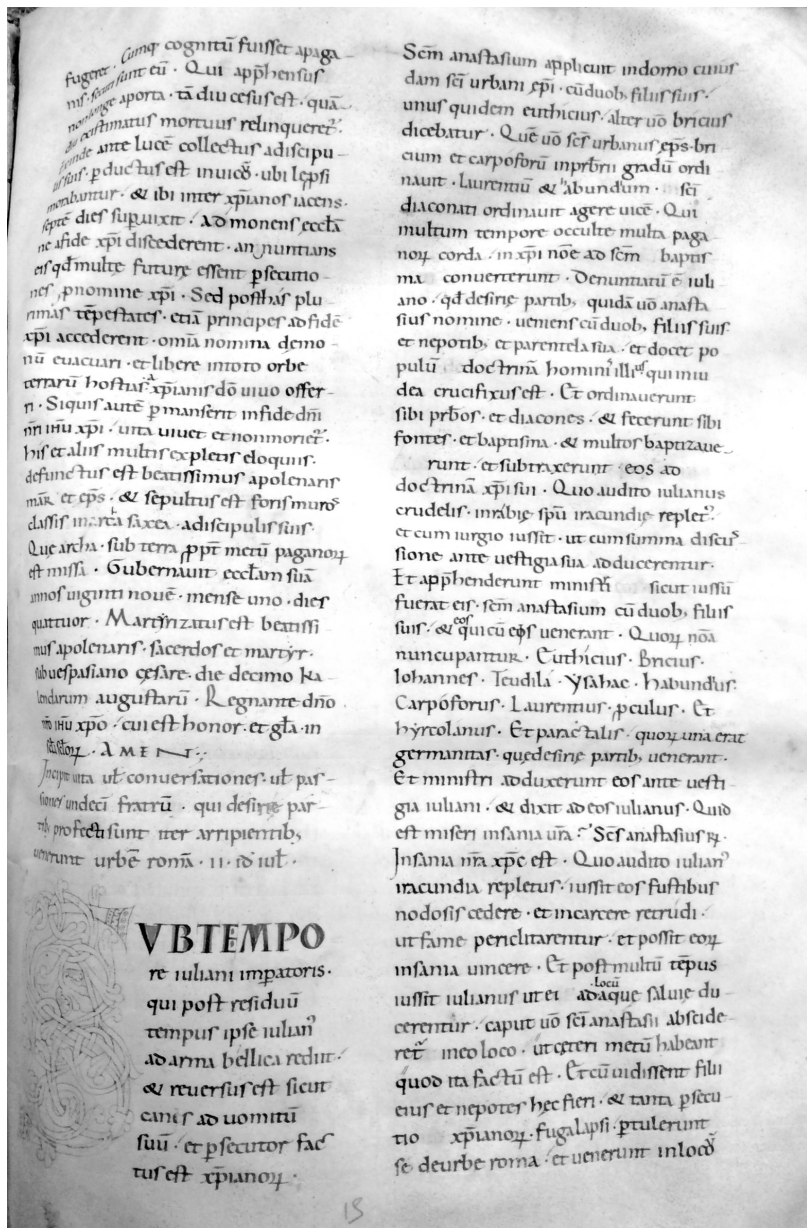 fugeret. Cumq; cognitū fuisset apaga
nis. secuti sunt eū. Qui app̄hensus
non longe aporta. tā diu cesus est. quā
diu existimatus mortuus relinqueret᷑.
Deinde ante lucē collectus adiscipu
lis suis. ꝑ ductus est in uicō. ubi lep̄si
morabantur. & ibi inter xp̄ianos iacens.
septē dies suꝑuixit. Ad monens eccl̄a
ne afide xp̄i discederent. an nuntians
eis qd̄ multę futurę essent ꝑsecutio
nes, ꝓ nomine xp̄i. Sed post has plu
rimas tēpestates. etiā principes ad fidē
xp̄i accederent. omīa nomina demo
nū euacuari. et libere in toto orbe
terrarū hostias xp̄ianis dō uiuo offer
ri. Si quis autē ꝑ manserit in fide dn̄i
nr̄i ihū xp̄i. uita uiuet et non moriet᷑.
his et aliis multis expletis eloquiis.
defunctus est beatissimus apolenaris
mar̄. et ep̄s. & sepultus est foris muros
classis in archa saxea. adiscipulis suis.
Que archa. sub terra ꝓpt̄ metū paganoꝝ
est missa. Gubernauit eccl̄am suā
annos uiginti nouē. mense uno. dies
quattuor. Martyrizatus est beatissi
mus apolenaris. sacerdos et martyr.
sub uespasiano cęsare. die decimo ka
lendarum augustarū. Regnante dn̄o
nr̄o ihū xp̄o. cui est honor. et gl̄a. in
sc̄la sc̄loꝝ. AMEN.
Incipit uita ul̄ conuersationes. ul̄ pas
siones undeci fratrū. qui desirię par
tib; profecti sunt iter arripientib;
uenerunt urbē romā. II. id̄ iul̄.
VB TEMPO
re iuliani imꝑatoris.
qui post residuū
tempus ipse iulian᾽
ad arma bellica rediit.
& reuersus est sicut
canis ad uomitū
suū. et ꝑsecutor fac
tus est xp̄ianoꝝ.
Sc̄m anastasium applicuit in domo cuius
dam sc̄i urbani ep̄i. cū duob; filiis suis.
unus quidem euthicius. alter uō bricius
dicebatur. Quē uō sc̄s urbanus ep̄s. bri
cium et carpoforū in pr̄br̄ii gradū ordi
nauit. Laurentiū & habundum sc̄i
diaconati ordinauit agere uicē. Qui
multum tempore occulte multa paga
noꝝ corda. in xp̄i nōe ad sc̄m baptis
ma conuerterunt. Denuntiatū ē iuli
ano. qd̄ desirię partib; quidā uō anasta
sius nomine. ueniens cū duob; filiis suis
et nepotib; et parentela sua. et docet po
pulū doctrinā homini illius qui in iu
dea crucifixus est. Et ordinauerunt
sibi pr̄bos. et diacones. & fecerunt sibi
fontes. et baptisma. & multos baptizaue
runt. et subtraxerunt eos ad
doctrinā xp̄i sui. Quo audito iulianus
crudelis. in rabię sp̄u iracundię replet᷑.
et cum iurgio iussit. ut cum summa discus
sione ante uestigia sua adducerentur.
Et app̄henderunt ministri sicut iussū
fuerat eis. sc̄m anastasium cū duob; filiis
suis. & eos qui cū eis uenerant. Quoꝝ nōa
nuncupantur. Euthicius. Bricius.
Iohannes. Teudila. Ysahac. habundus.
Carpoforus. Laurentius. ꝓculus. Et
hyrcolanus. Et paractalis. quoꝝ una erat
germanitas. que desirię partib; uenerant.
Et ministri adduxerunt eos ante uesti
gia iuliani. & dixit ad eos iulianus. Quid
est miseri insania ur̄a. Sc̄s anastasius ꝶ.
Insania nr̄a xp̄c est. Quo audito iulian᾽
iracundia repletus. iussit eos fustibus
nodosis cedere. et in carcere retrudi.
ut fame periclitarentur. et possit eoꝝ
insania uincere. Et post multū tēpus
iussit iulianus ut ei ad locū aque saluię du
cerentur. caput uō sc̄i anastasii abscide
ret᷑ in eo loco. ut ceteri metū habeant
quod ita factū est. Et cū uidissent filii
eius et nepotes hec fieri. & tanta ꝑsecu
tio xp̄ianoꝝ. fuga lapsi. ꝑtulerunt
se deurbe roma. et uenerunt in locō
15